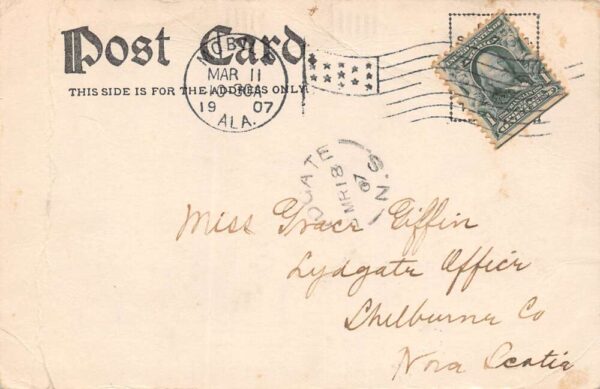 Post Card
THIS SIDE IS FOR THE ADDRESS ONLY.
MOBILE
MAR 11
1907
ALA.
MR 18
07
N.S.
Miss Grace Giffin
Lydgate Office
Shelburne Co
Nova Scotia